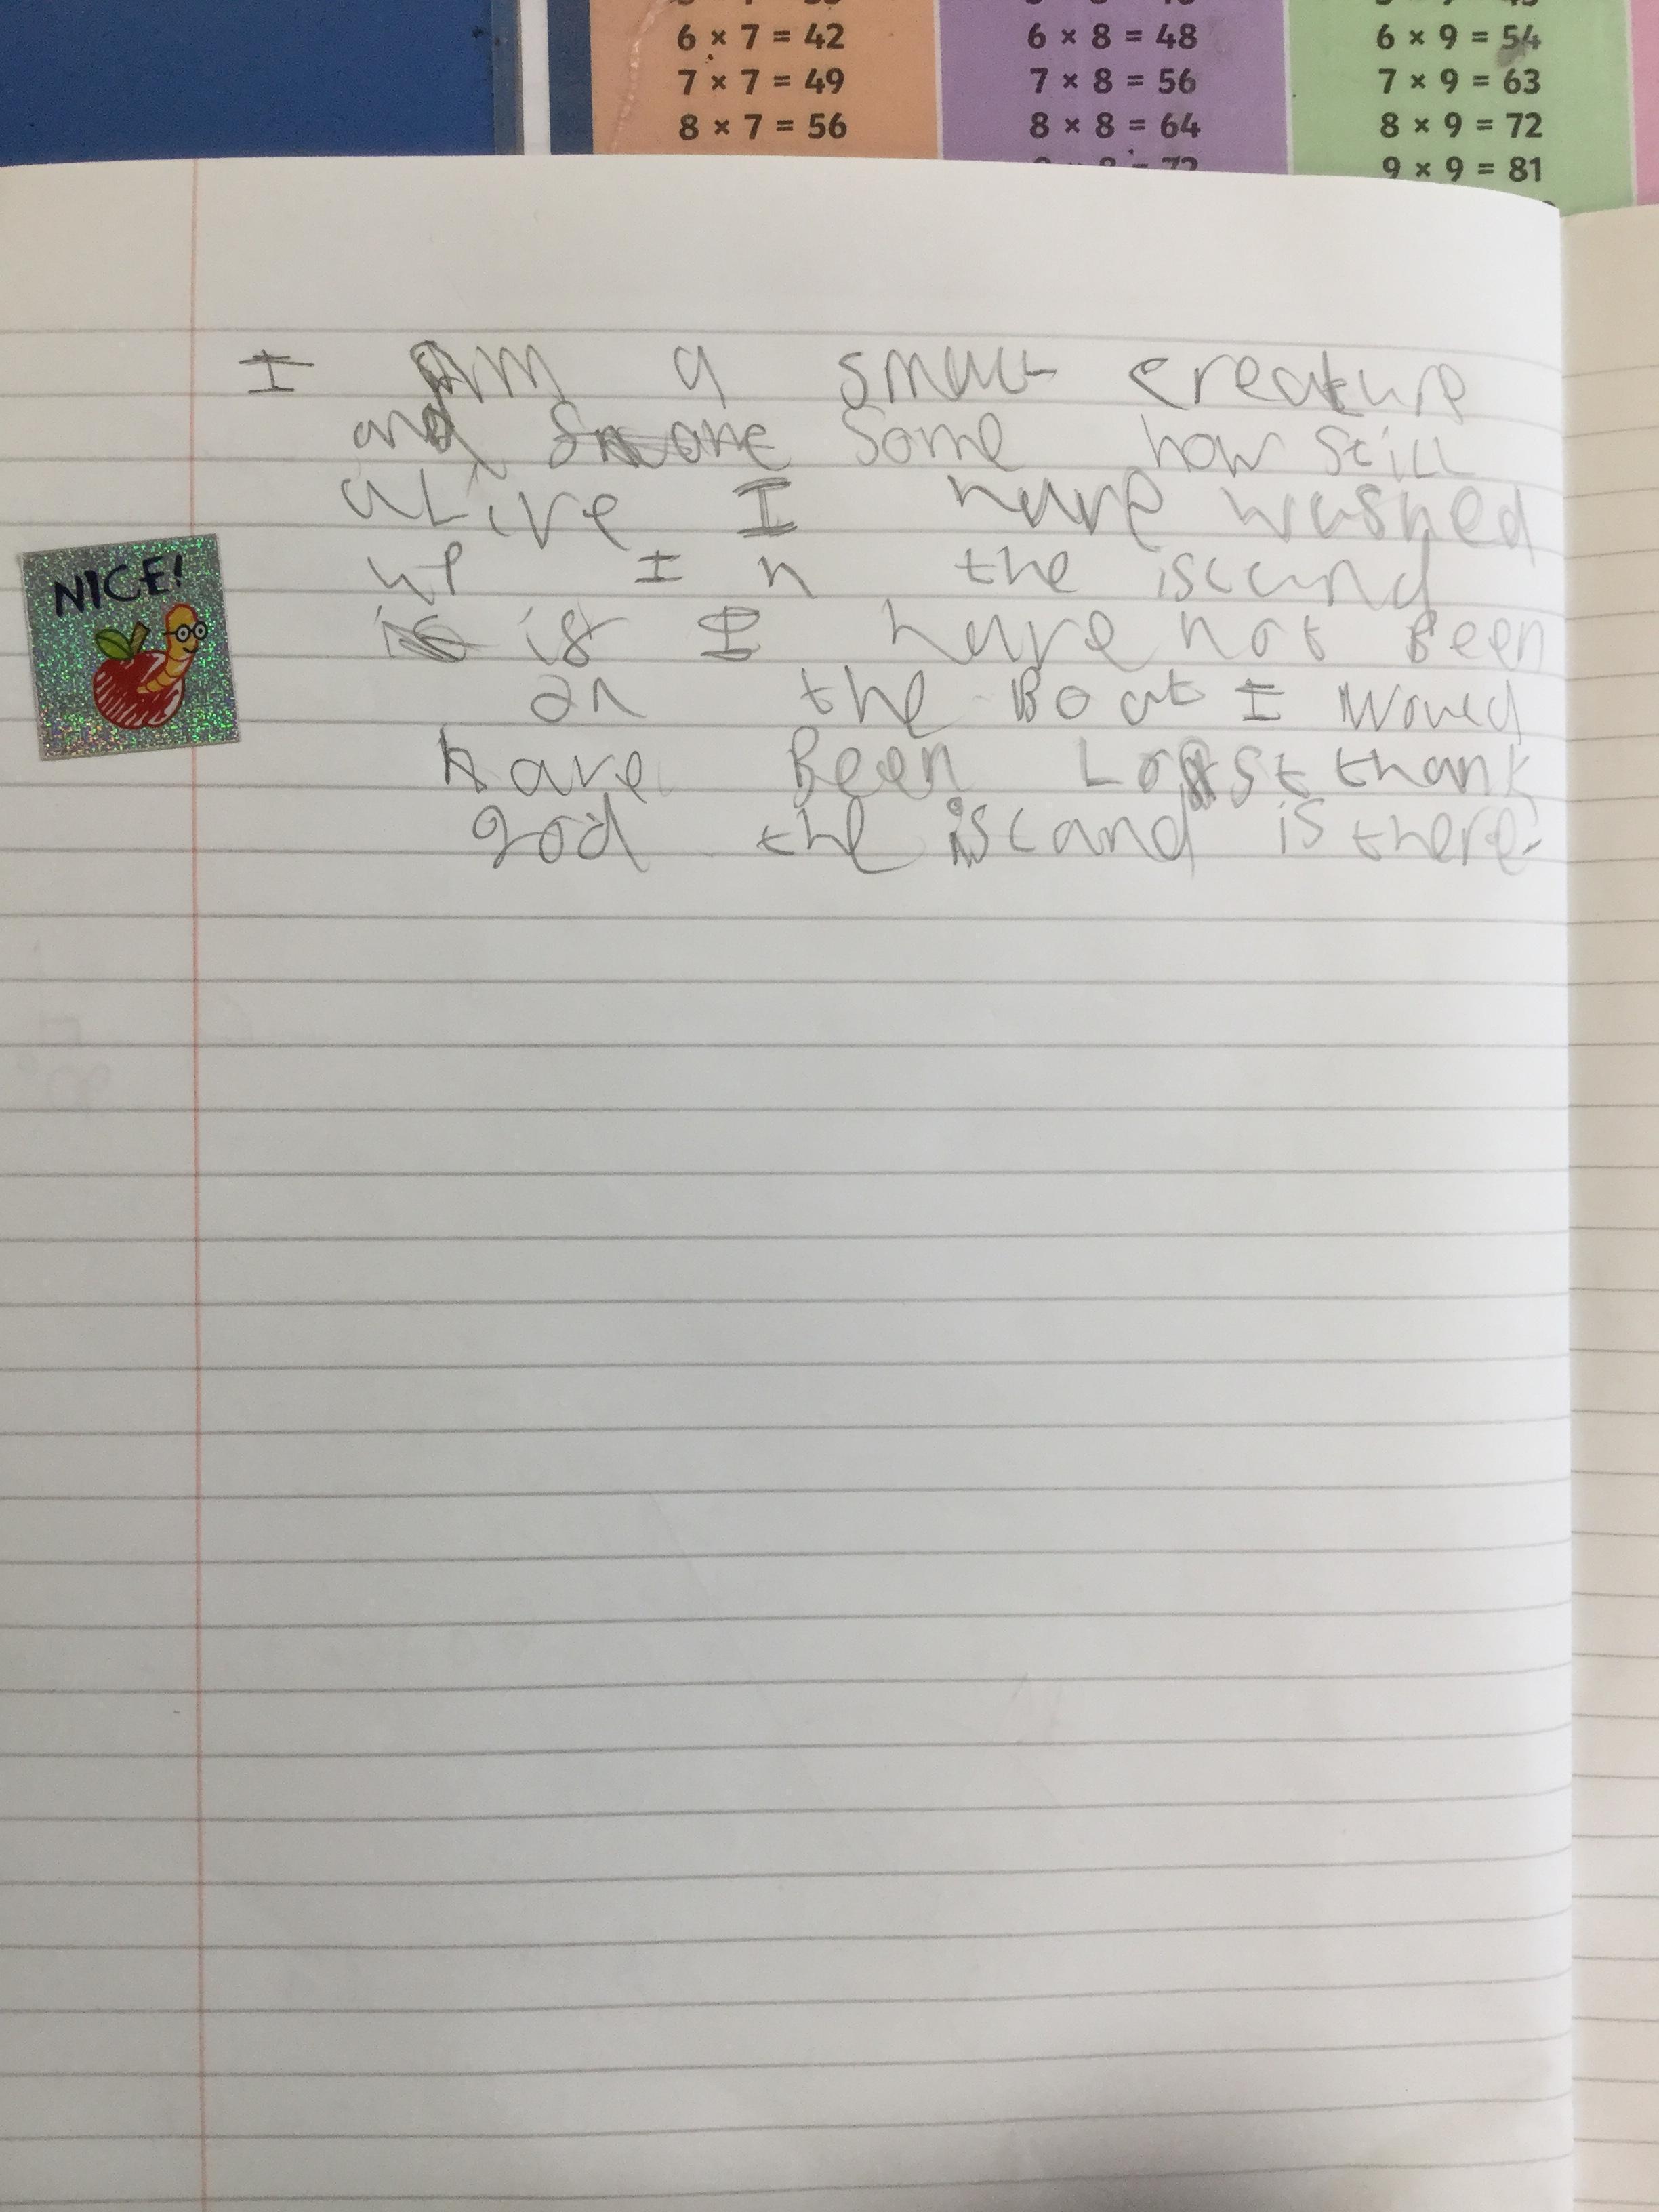 6 × 7 = 42 6 × 8 = 48 6 × 9 = 54
7 × 7 = 49 7 × 8 = 56 7 × 9 = 63
8 × 7 = 56 8 × 8 = 64 8 × 9 = 72
9 × 9 = 81
I Am a small creature
and some how still
aLive I have washed
up In the island
NICE!
if I have not Been
on the Boat I Would
have Been Lost thank
god the island is there.